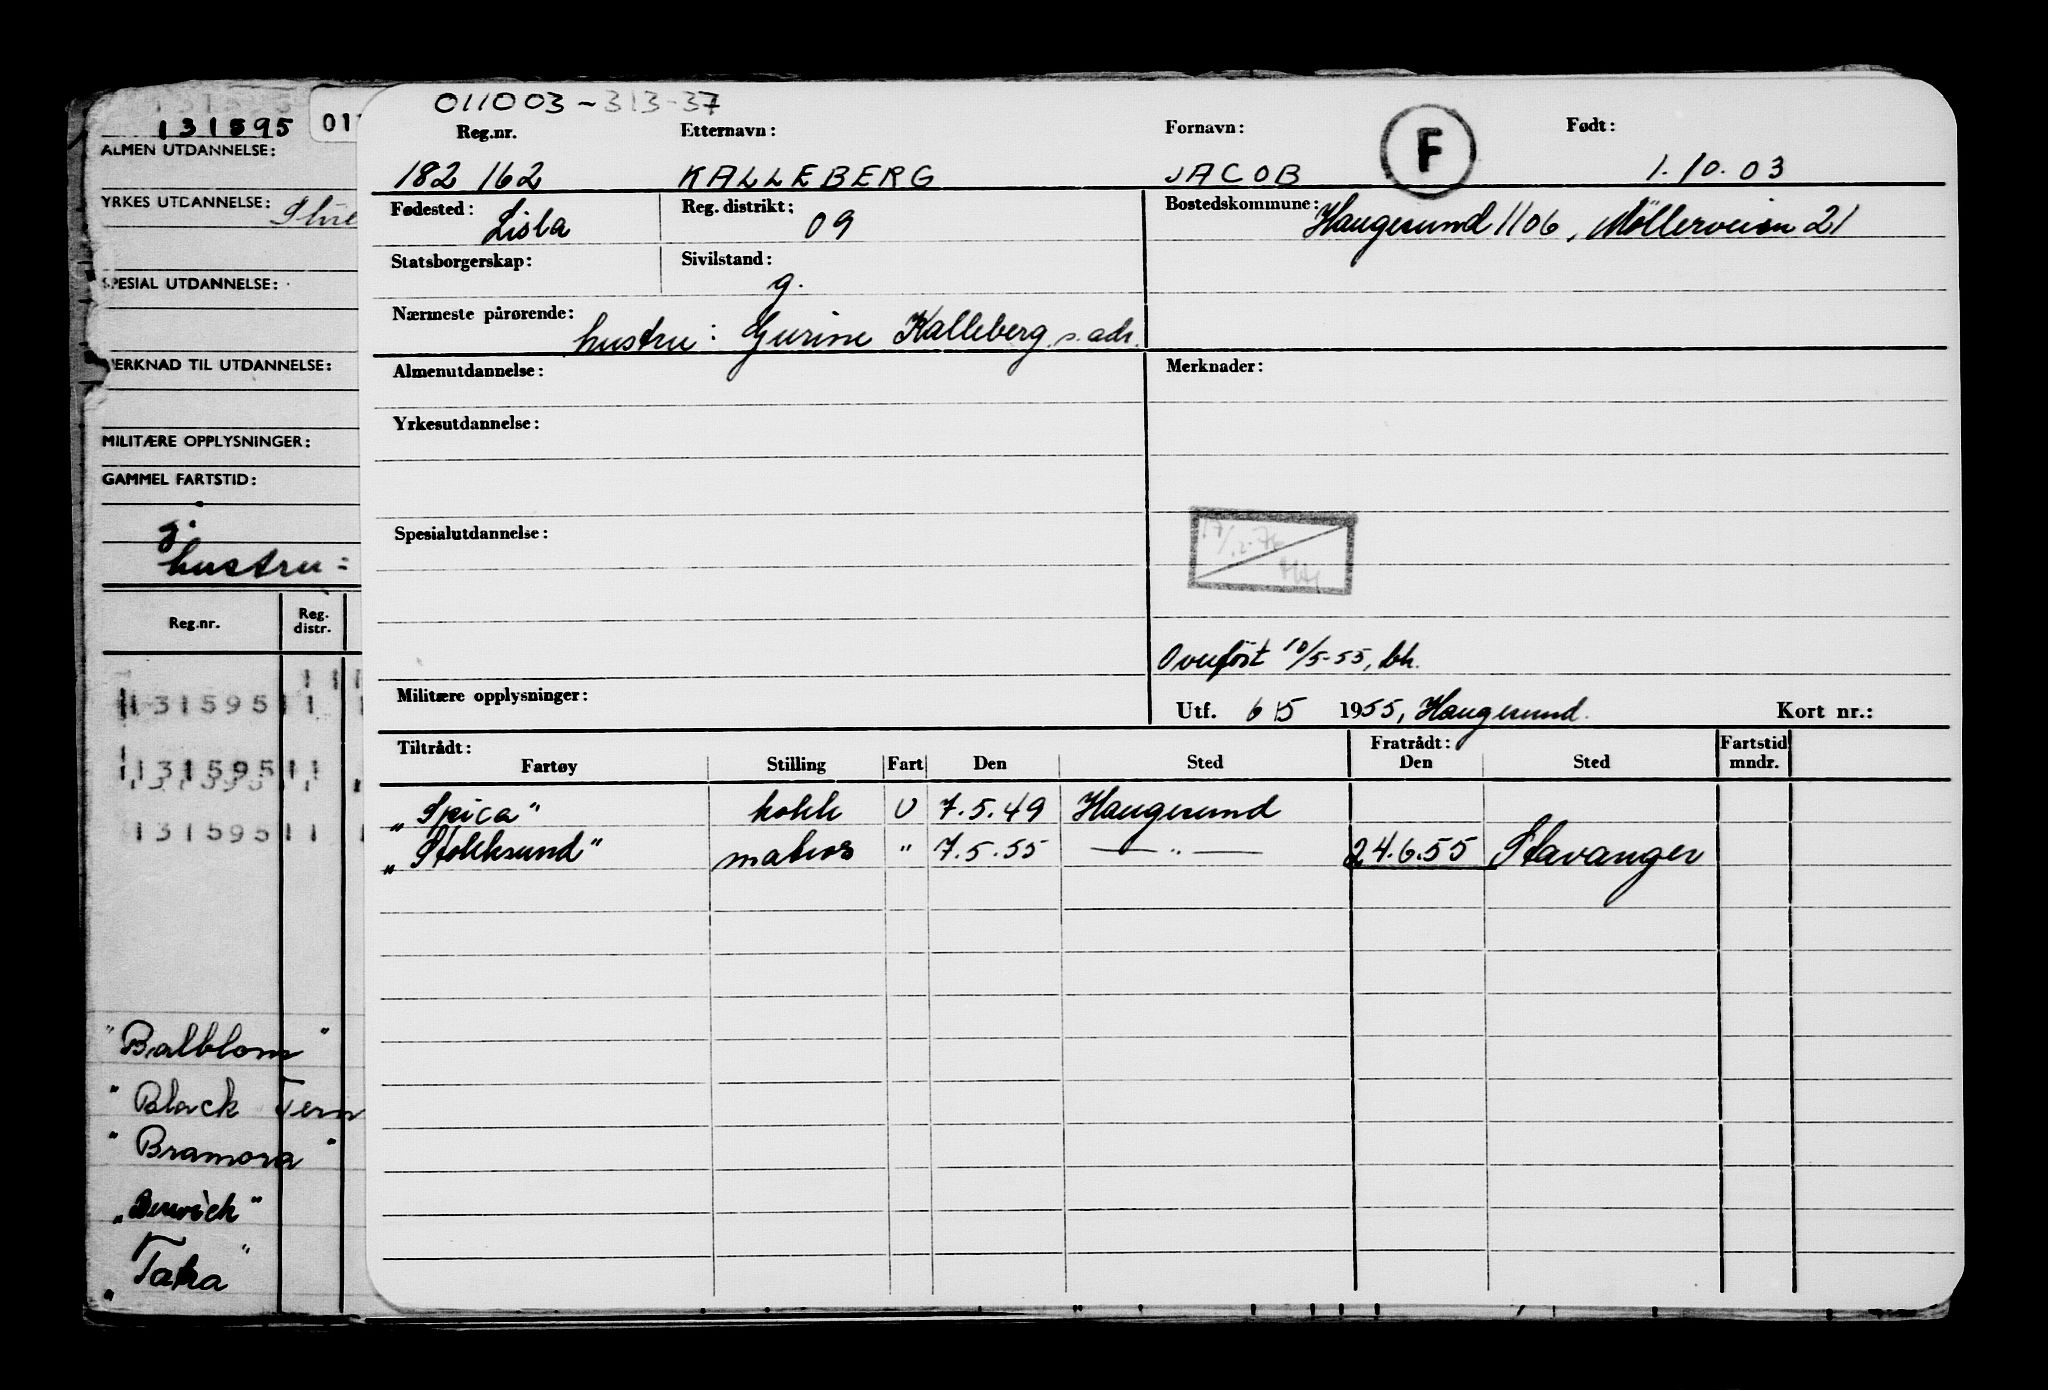 131595
011
ALMEN UTDANNELSE:
YRKES UTDANNELSE:
SPESIAL UTDANNELSE:
MERKNAD TIL UTDANNELSE:
MILITÆRE OPPLYSNINGER:
GAMMEL FARTSTID:
g.
hustru:
Reg.nr. Reg. distr.
131595 11
131595 11
131595 11
131595 11
"Balblom"
"Black Tern
"Bramora"
„Berwick"
„Tatra"
011003-313-37
Reg.nr. Etternavn: Fornavn: F Født:
182 162 KALLEBERG JACOB 1.10.03
Fødested: Lisla Reg. distrikt: 09 Bostedskommune: Haugesund 1106, Möllerveien 21
Statsborgerskap: Sivilstand: g.
Nærmeste pårørende: hustru: Gurine Kalleberg s. adr.
Almenutdannelse: Merknader:
Yrkesutdannelse:
Spesialutdannelse:
Overført 10/5-55, bh.
Militære opplysninger: Utf. 6/5 1955, Haugesund. Kort nr.:
Tiltrådt: Fratrådt: Fartstid
Fartøy Stilling Fart Den Sted Den Sted mndr.
„Spica" kokk U 7.5.49 Haugesund
„Stokksund" matros " 7.5.55 — " — 24.6.55 Stavanger